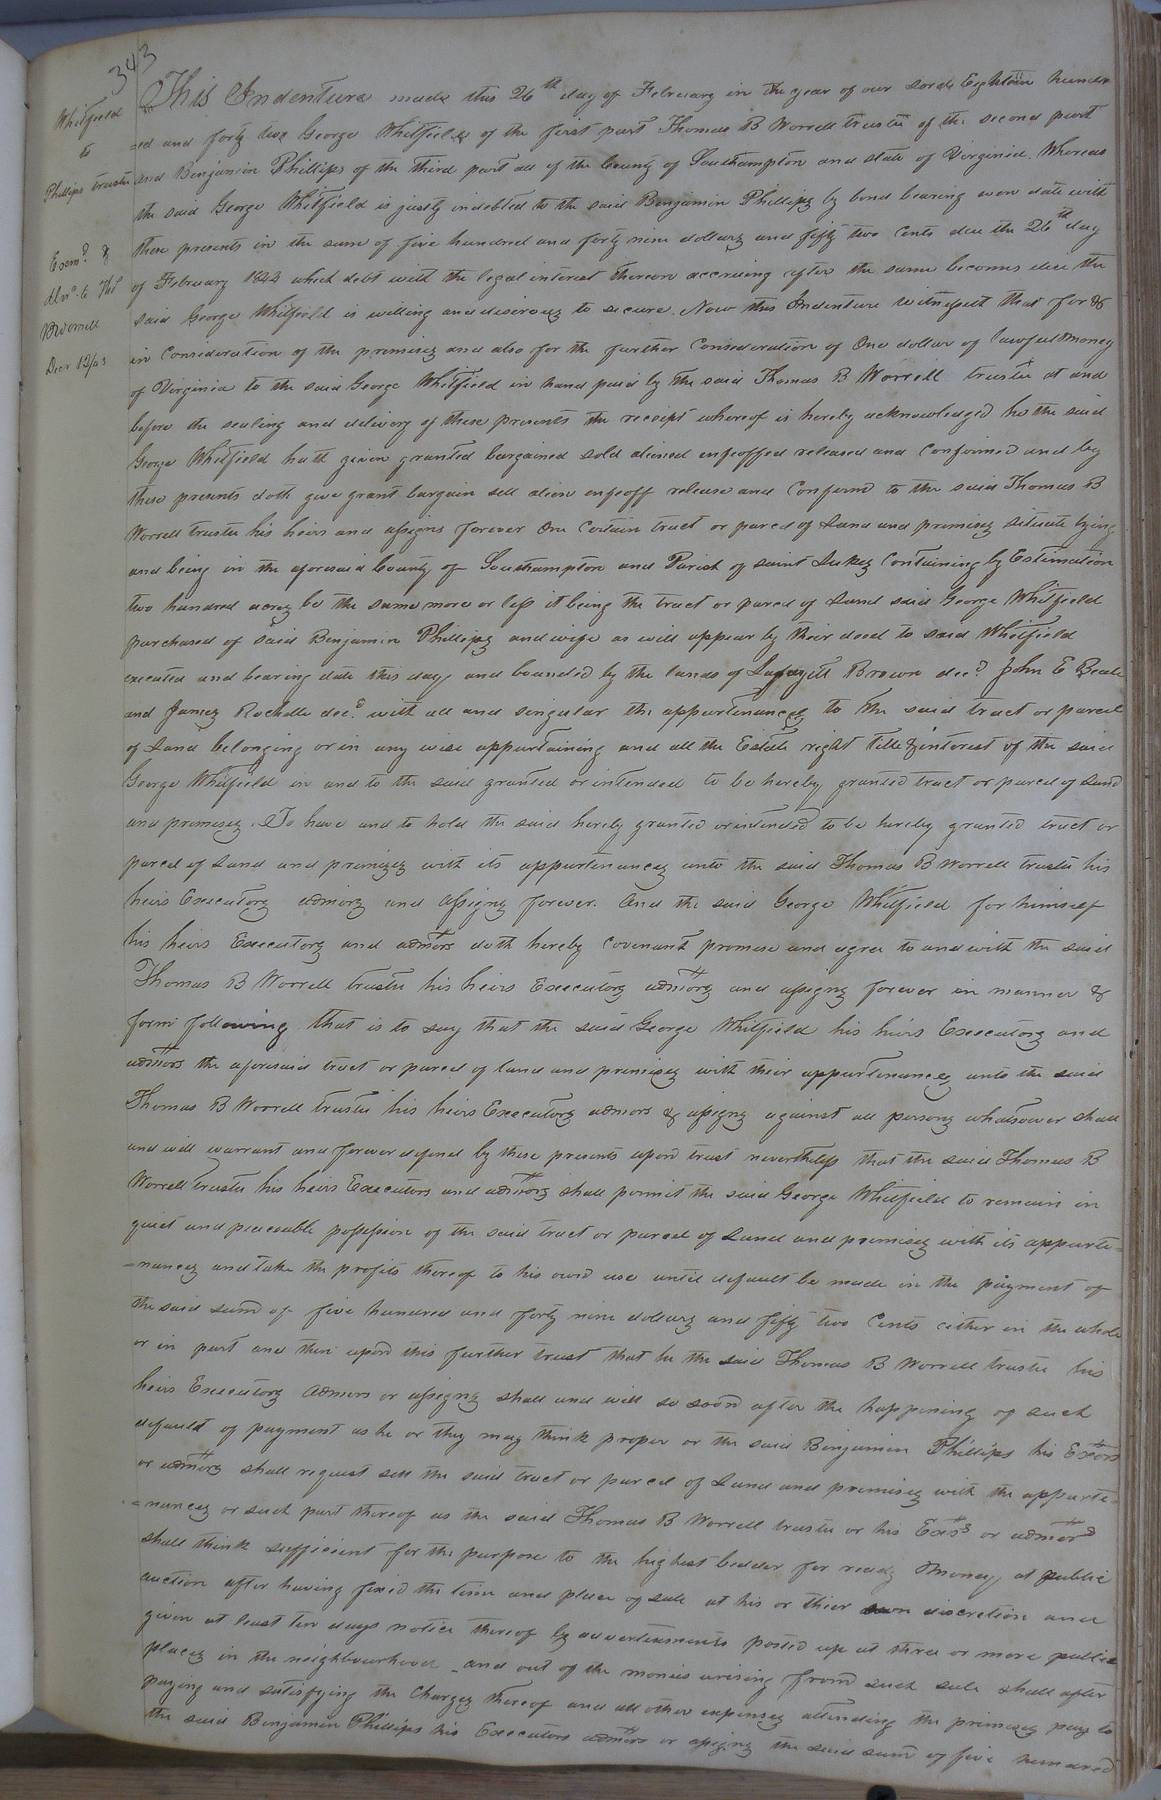 343
Whitfield
to
Phillips trustee
Exam.d &
dlv.d to Tho.s
B Worrell
Decr 12/43
This Indenture made this 26th day of February in the year of our Lord Eighteen hundr
=ed and forty two George Whitfield of the first part Thomas B Worrell trustee of the second part
and Benjamin Phillips of the third part all of the County of Southampton and state of Virginia. Whereas
the said George Whitfield is justly indebted to the said Benjamin Phillips by bond bearing even date with
these presents in the sum of five hundred and forty nine dollars and fifty two Cents due the 26th day
of February 1843 which debt with the legal interest thereon accruing after the same becomes due the
said George Whitfield is willing and desirous to secure. Now this Indenture witnesseth that for &
in Consideration of the premises and also for the further Consideration of One dollar of lawful money
of Virginia to the said George Whitfield in hand paid by the said Thomas B Worrell trustee at and
before the sealing and delivery of these presents the receipt whereof is hereby acknowledged he the said
George Whitfield hath given granted bargained sold aliened enfeoffed released and Confirmed and by
these presents doth give grant bargain sell alien enfeoff release and Confirm to the said Thomas B
Worrell trustee his heirs and assigns forever One Certain tract or parcel of Land and premises situate lying
and being in the aforesaid County of Southampton and Parish of saint Lukes Containing by Estimation
two hundred acres be the same more or less it being the tract or parcel of Land said George Whitfield
purchased of said Benjamin Phillips and wife as will appear by their deed to said Whitfield
executed and bearing date this day and bounded by the lands of Brown decd John E Beale
and James Rochelle decd with all and singular the appurtenances to the said tract or parcel
of Land belonging or in any wise appurtaining and all the Estate right title & interest of the said
George Whitfield in and to the said granted or intended to be hereby granted tract or parcel of Land
and premises. To have and to hold the said hereby granted or intended to be hereby granted tract or
parcel of Land and premises with its appurtenances unto the said Thomas B Worrell trustee his
heirs Executors admors and Assigns forever. And the said George Whitfield for himself
his heirs Executors and admors doth hereby Covenant promise and agree to and with the said
Thomas B Worrell trustee his heirs Executors admors and assigns forever in manner &
form following that is to say that the said George Whitfield his heirs Executors and
admors the aforesaid tract or parcel of land and premises with their appurtenances unto the said
Thomas B Worrell trustee his heirs Executors admors & assigns against all persons whatsoever shall
and will warrant and forever defend by these presents upon trust nevertheless that the said Thomas B
Worrell trustee his heirs Executors and admors shall permit the said George Whitfield to remain in
quiet and peaceable possession of the said tract or parcel of Land and premises with its appurte=
=nances and take the profits thereof to his own use until default be made in the payment of
the said sum of five hundred and forty nine dollars and fifty two Cents either in the whole
or in part and then upon this further trust that he the said Thomas B Worrell trustee his
heirs Executors Admors or assigns shall and will so soon after the happening of such
default of payment as he or they may think proper or the said Benjamin Phillips his Exors
or admors shall request sell the said tract or parcel of Land and premises with the appurte=
=nances or such part thereof as the said Thomas B Worrell trustee or his Exors or admors
shall think sufficient for the purpose to the highest bidder for ready Money at public
auction after having fixed the time and place of sale at his or thier own discretion and
given at least ten days notice thereof by advertisements posted up at three or more public
places in the neighbourhood and out of the monies arising from such sale shall after
paying and satisfying the Charges thereof and all other expenses attending the premises pay to
the said Benjamin Phillips his Executors admors or assigns the said sum of five hundred